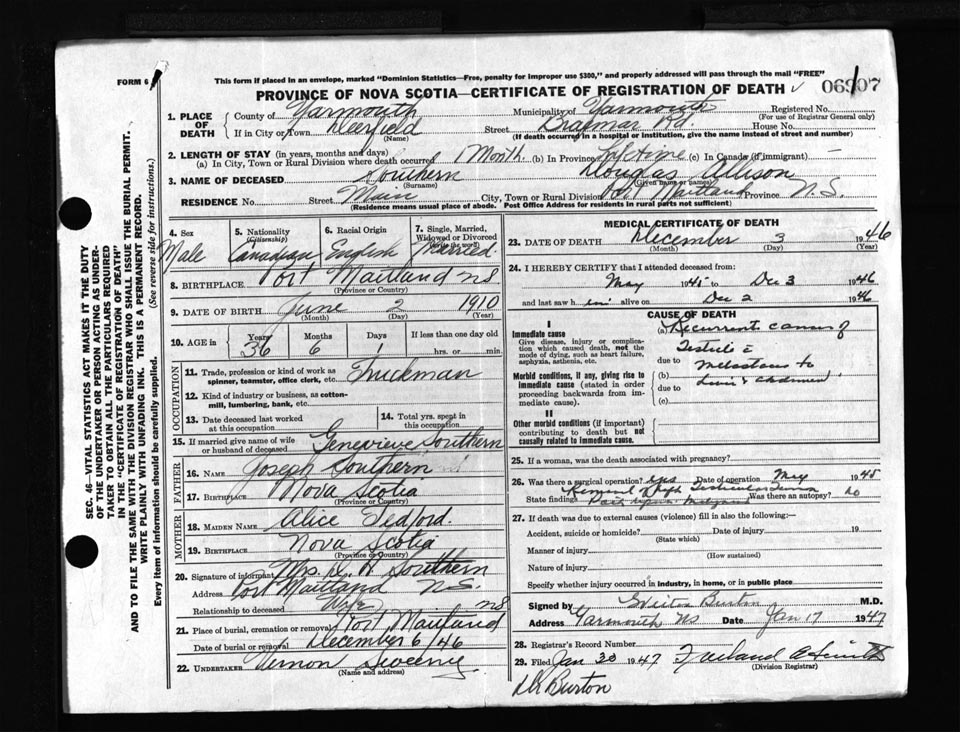 FORM 6
This form if placed in an envelope, marked "Dominion Statistics—Free, penalty for improper use $300," and properly addressed will pass through the mail "FREE"
PROVINCE OF NOVA SCOTIA—CERTIFICATE OF REGISTRATION OF DEATH
06907
SEC. 46—VITAL STATISTICS ACT MAKES IT THE DUTY
OF THE UNDERTAKER OR PERSON ACTING AS UNDER-
TAKER TO OBTAIN ALL THE PARTICULARS REQUIRED
IN THE "CERTIFICATE OF REGISTRATION OF DEATH"
AND TO FILE THE SAME WITH THE DIVISION REGISTRAR WHO SHALL ISSUE THE BURIAL PERMIT.
WRITE PLAINLY WITH UNFADING INK. THIS IS A PERMANENT RECORD.
Every item of information should be carefully supplied. (See reverse side for instructions.)
1. PLACE OF DEATH County of Yarmouth Municipality of Yarmouth Registered No.
(For use of Registrar General only)
If in City or Town Deerfield Street Braemar Rd. House No.
(Name) (If death occurred in a hospital or institution, give the name instead of street and number)
2. LENGTH OF STAY (in years, months and days)
(a) In City, Town or Rural Division where death occurred 1 Month. (b) In Province Lifetime (c) In Canada (if immigrant) —
3. NAME OF DECEASED Southern Douglas Allison
(Surname) (Given name or names)
RESIDENCE No. Street Main City, Town or Rural Division Port Maitland Province N.S.
(Residence means usual place of abode. Post Office Address for residents in rural parts not sufficient)
4. Sex Male
5. Nationality (Citizenship) Canadian
6. Racial Origin English
7. Single, Married, Widowed or Divorced (Write the word) Married
8. BIRTHPLACE Port Maitland NS
(Province or Country)
9. DATE OF BIRTH June 2 1910
(Month) (Day) (Year)
10. AGE in Years 36 Months 6 Days 1 If less than one day old hrs. or min.
OCCUPATION
11. Trade, profession or kind of work as spinner, teamster, office clerk, etc. Truckman
12. Kind of industry or business, as cotton-mill, lumbering, bank, etc.
13. Date deceased last worked at this occupation
14. Total yrs. spent in this occupation
15. If married give name of wife or husband of deceased Genevieve Southern
FATHER
16. NAME Joseph Southern
17. BIRTHPLACE Nova Scotia
(Province or Country)
MOTHER
18. MAIDEN NAME Alice Tedford.
19. BIRTHPLACE Nova Scotia
(Province or Country)
20. Signature of informant Mrs. D. A Southern
Address Port Maitland NS
Relationship to deceased Wife
21. Place of burial, cremation or removal Port Maitland NS
Date of burial or removal December 6/46
22. UNDERTAKER Vernon Sweeney
(Name and address)
MEDICAL CERTIFICATE OF DEATH
23. DATE OF DEATH December 3 1946
(Month) (Day) (Year)
24. I HEREBY CERTIFY that I attended deceased from:
May 1945 to Dec 3 1946
and last saw him alive on Dec 2 1946
CAUSE OF DEATH
I
Immediate cause
Give disease, injury or complication which caused death, not the mode of dying, such as heart failure, asphyxia, asthenia, etc.
(a) Recurrent cancer of
Testicle
due to
Morbid conditions, if any, giving rise to immediate cause (stated in order proceeding backwards from immediate cause).
(b) metastases to
due to
(c)
II
Other morbid conditions (if important) contributing to death but not causally related to immediate cause.
25. If a woman, was the death associated with pregnancy?
26. Was there a surgical operation? yes Date of operation May 1945
State findings Removal of Testicular Was there an autopsy? no
27. If death was due to external causes (violence) fill in also the following:—
Accident, suicide or homicide? Date of injury 19
(State which)
Manner of injury
(How sustained)
Nature of injury
Specify whether injury occurred in industry, in home, or in public place
Signed by Burton M.D.
Address Yarmouth NS Date Jan 17 1947
28. Registrar's Record Number
29. Filed Jan 20 1947
(Division Registrar)
Dr Burton